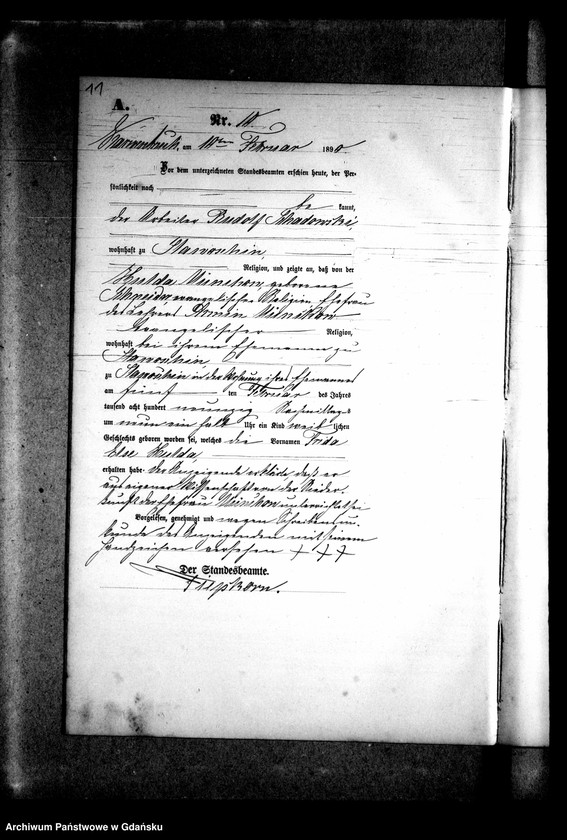 11
A.
Nr. 10
am 10ten Februar 1890
Vor dem unterzeichneten Standesbeamten erschien heute, der Per-
sönlichkeit nach
be kannt,
der Arbeiter Rudolf Schadowski,
wohnhaft zu
Religion, und zeigte an, daß von der
Hulda geborene
Schneider evangelischer Religion Ehefrau
des Lehrers
evangelischer Religion,
wohnhaft bei ihrem Ehemanne zu
zu in der Wohnung ihres Ehemannes
am fünf ten Februar des Jahres
tausend acht hundert neunzig Nachmittags
um neun ein halb Uhr ein Kind weib lichen
Geschlechts geboren worden sei, welches die Vornamen Frida
Else Hulda,
erhalten habe. der Anzeigende erklärte daß er
aus eigener Wissenschaft von der Nieder-
kunft der Ehefrau unterrichtet sei
Vorgelesen, genehmigt und wegen Schreibensun-
kunde des Anzeigenden mit seinem
Handzeichen versehen + + +
Der Standesbeamte.
Archiwum Państwowe w Gdańsku